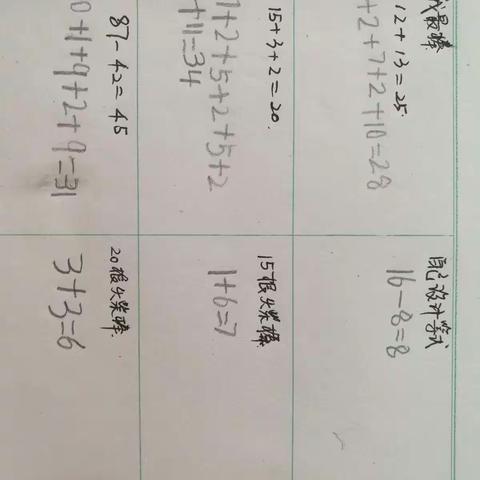 最棒
12+13=25.
+2+7+2+10=28
自己设计等式
16-8=8
15+3+2=20.
7+2+5+2+5+2
+11=34
15根火柴棒.
1+6=7
87-42=45
0+1+9+2+9=31
20根火柴棒.
3+3=6